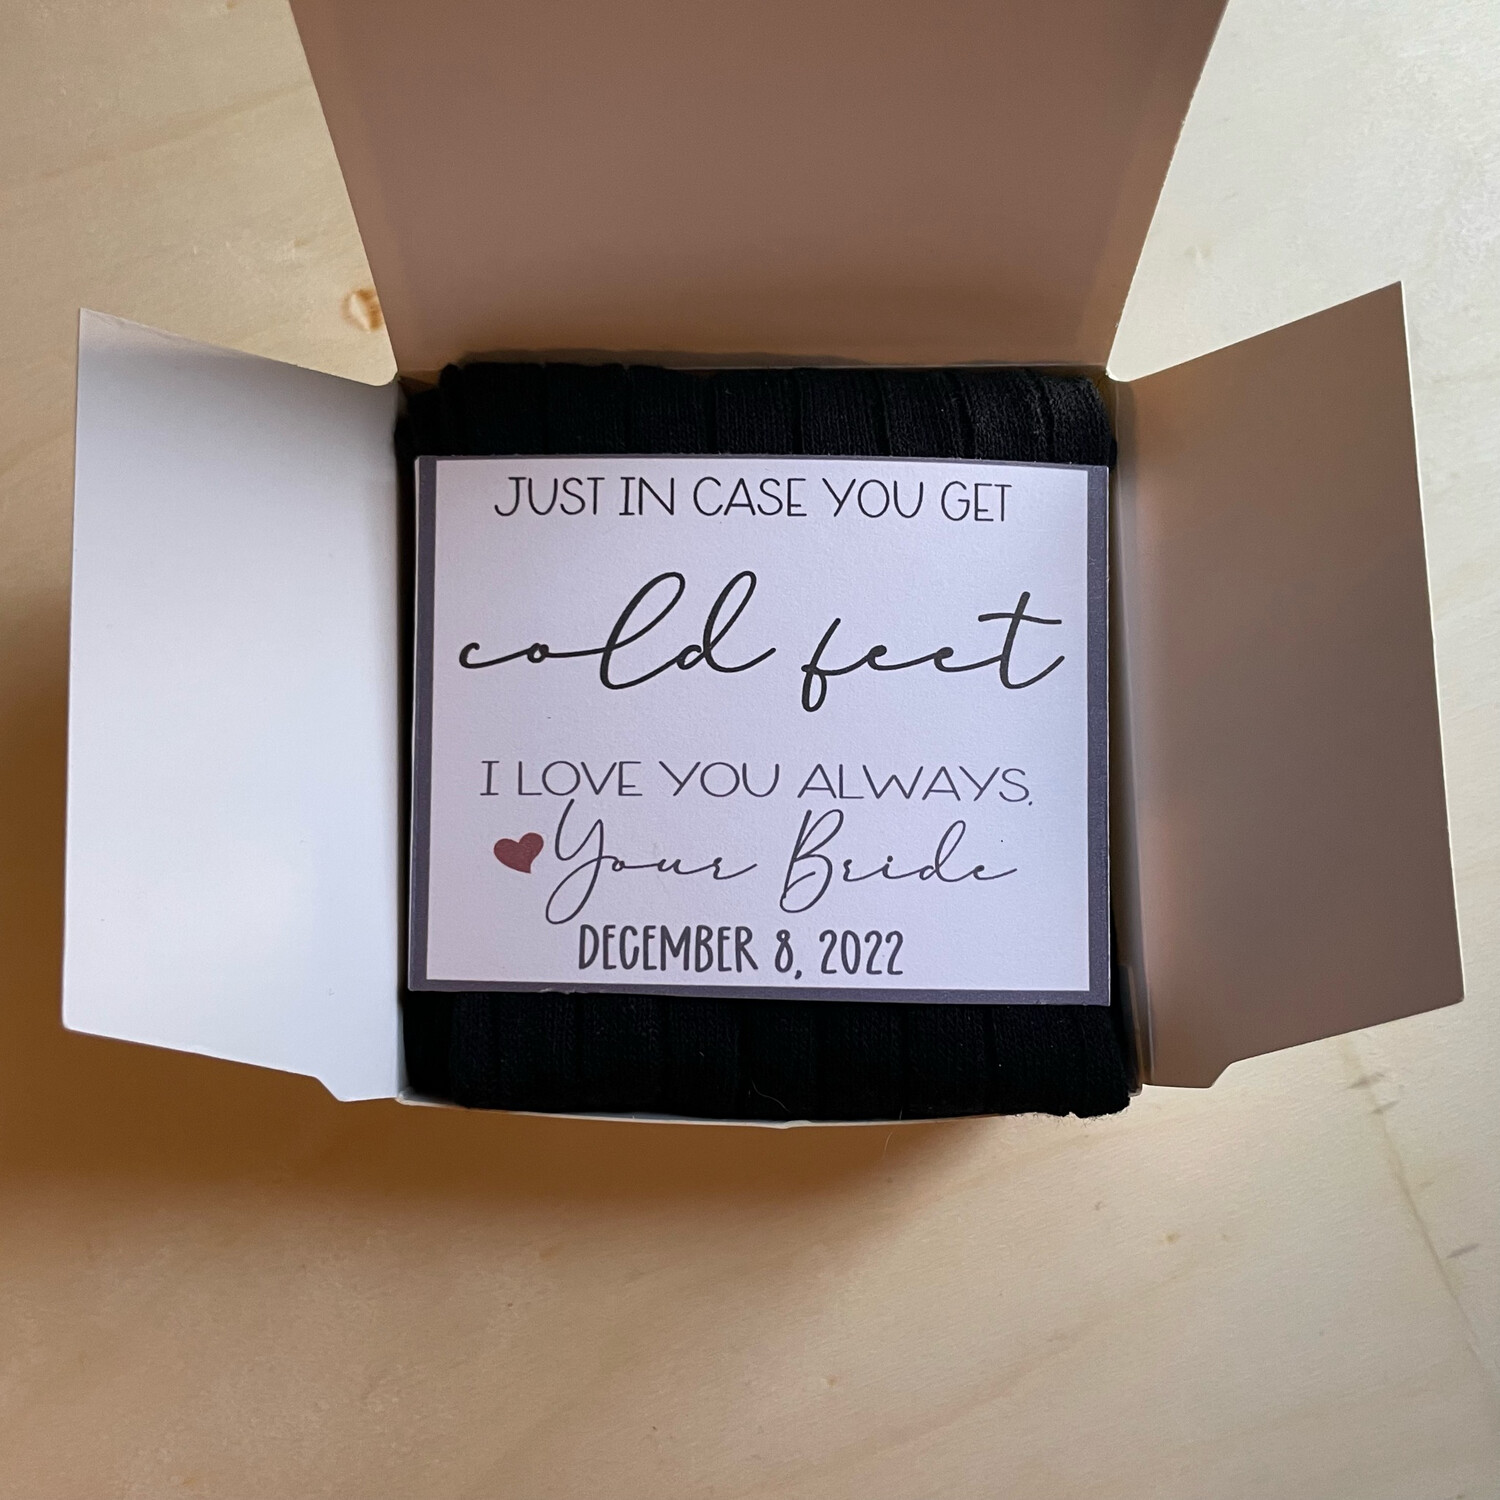 JUST IN CASE YOU GET
cold feet
I LOVE YOU ALWAYS,
Your Bride
DECEMBER 8, 2022